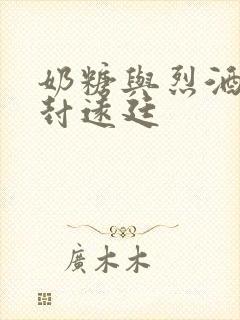 奶糖與烈酒
封遠廷
廣木木